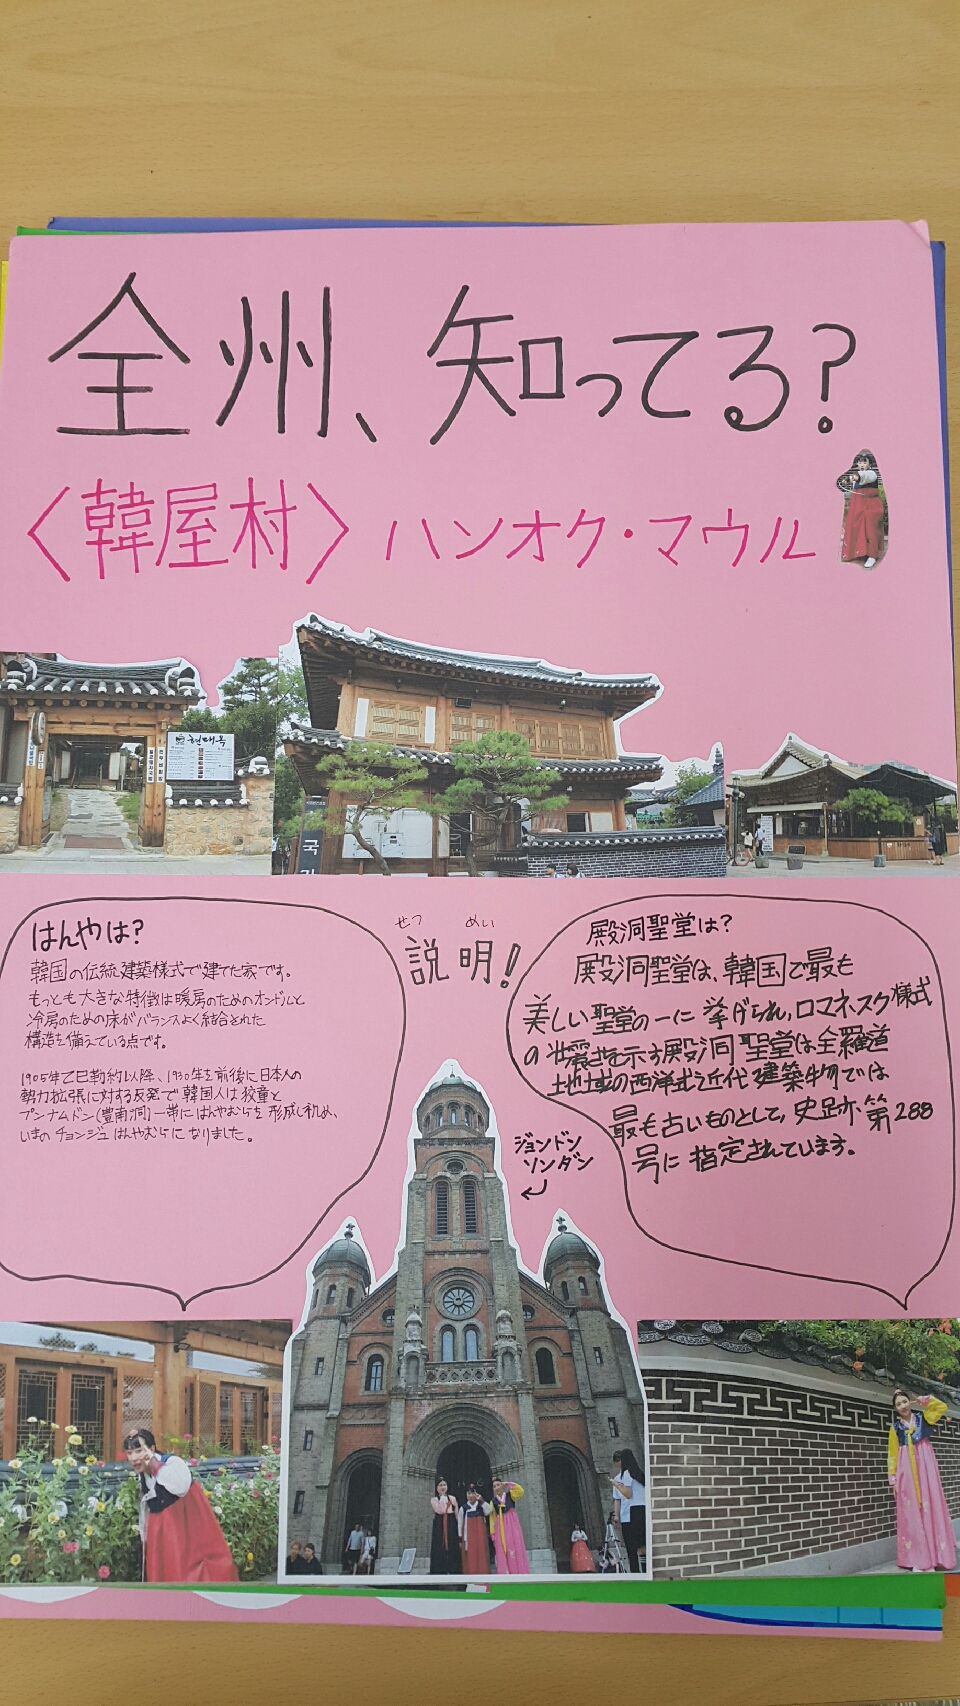 全州、知ってる?
〈韓屋村〉ハンオク・マウル
현대옥
국
はんやは?
韓国の伝統建築様式で建てた家です。
もっとも大きな特徴は暖房のためのオンドルと
冷房のための床がバランスよく結合された
構造を備えている点です。
1905年乙巳勒約以降、1930年を前後に日本人の
勢力拡張に対する反発で韓国人は校童と
プンナムドン(豊南洞)一帯にはんやむらを形成し
いまのチョンジュはんやむらになりました。
せつ めい
説明!
殿洞聖堂は?
殿洞聖堂は、韓国で最も
美しい聖堂の一に挙げられ,ロマネスク様式
の壮震さを示す殿洞聖堂は全羅道
地域の西洋式近代建築物では
最も古いものとして,史跡第288
号に指定されています。
ジョンドン
ソンダン